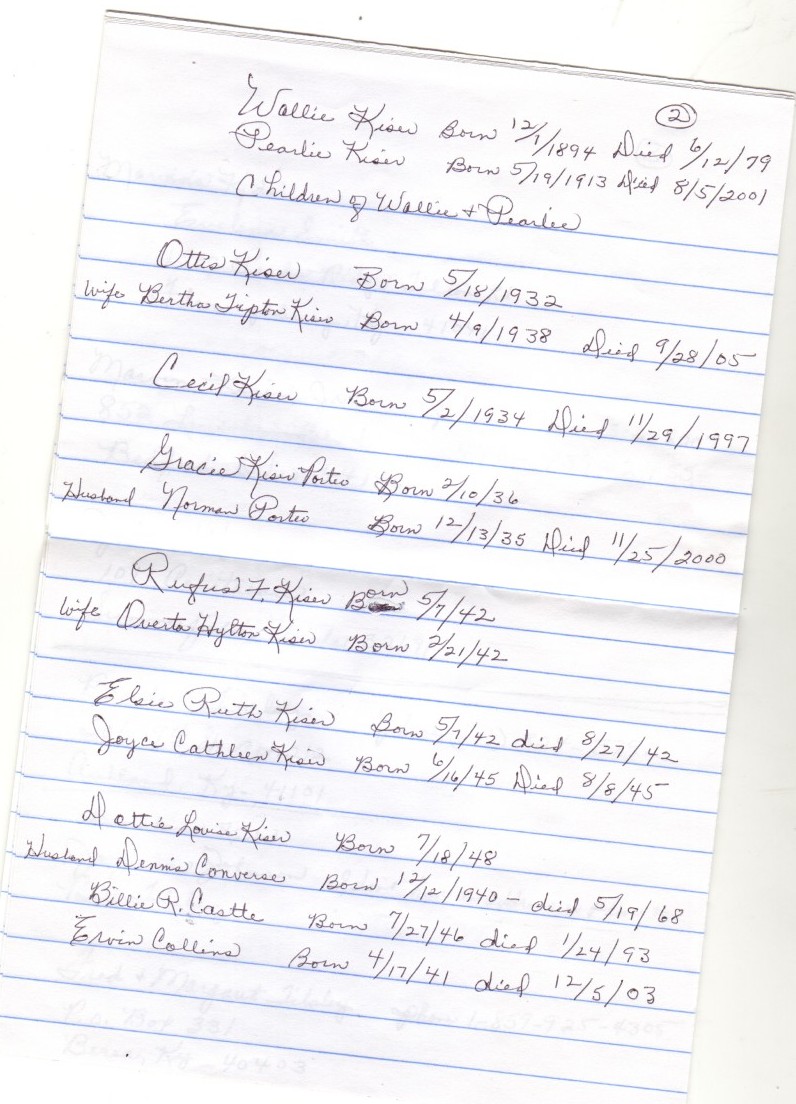 ②
Wallie Kiser Born 12/1/1894 Died 6/12/79
Pearlie Kiser Born 5/19/1913 Died 8/5/2001
Children of Wallie + Pearlie
Ottis Kiser Born 5/18/1932
wife Bertha Tipton Kiser Born 4/9/1938 Died 9/28/05
Cecil Kiser Born 5/2/1934 Died 11/29/1997
Gracie Kiser Porter Born 2/10/36
Husband Norman Porter Born 12/13/35 Died 11/25/2000
Rufus F. Kiser Born 5/7/42
wife Overta Hylton Kiser Born 2/21/42
Elsie Ruth Kiser Born 5/7/42 died 8/27/42
Joyce Cathleen Kiser Born 6/16/45 Died 8/8/45
Dottie Louise Kiser Born 7/18/48
Husband Dennis Converse Born 12/12/1940 - died 5/19/68
Billie R. Castle Born 7/27/46 died 1/24/93
Ervin Collins Born 4/17/41 died 12/5/03